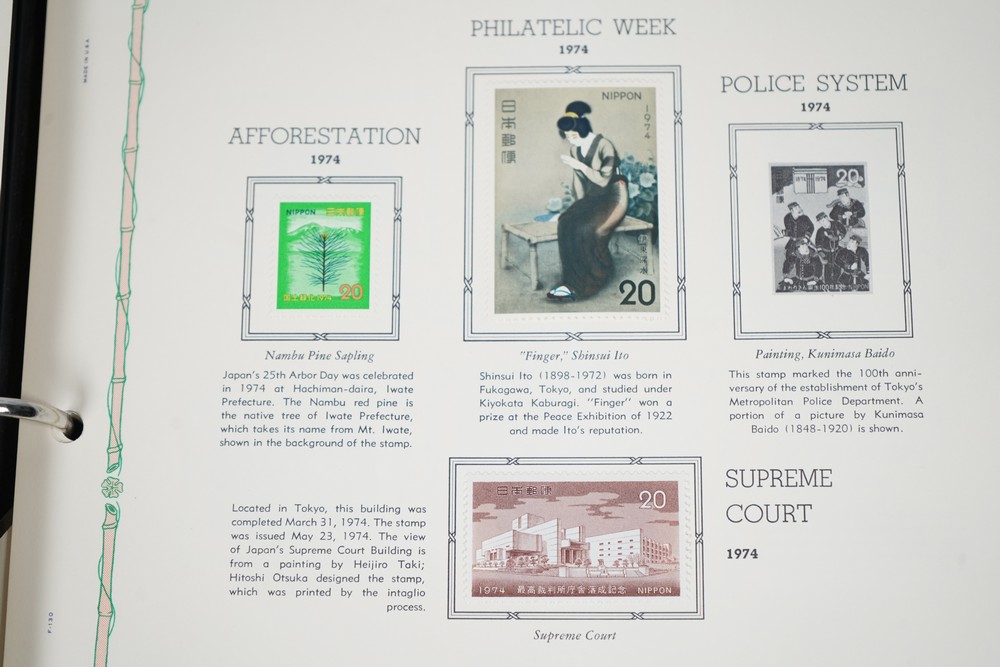 MADE IN U.S.A.
AFFORESTATION
1974
NIPPON 日本郵便
国土緑化1974 20
Nambu Pine Sapling
Japan's 25th Arbor Day was celebrated
in 1974 at Hachiman-daira, Iwate
Prefecture. The Nambu red pine is
the native tree of Iwate Prefecture,
which takes its name from Mt. Iwate,
shown in the background of the stamp.
PHILATELIC WEEK
1974
日本郵便
NIPPON
1974
20
"Finger," Shinsui Ito
Shinsui Ito (1898-1972) was born in
Fukagawa, Tokyo, and studied under
Kiyokata Kaburagi. "Finger" won a
prize at the Peace Exhibition of 1922
and made Ito's reputation.
POLICE SYSTEM
1974
1874 1974
20
NIPPON
Painting, Kunimasa Baido
This stamp marked the 100th anni-
versary of the establishment of Tokyo's
Metropolitan Police Department. A
portion of a picture by Kunimasa
Baido (1848-1920) is shown.
Located in Tokyo, this building was
completed March 31, 1974. The stamp
was issued May 23, 1974. The view
of Japan's Supreme Court Building is
from a painting by Heijiro Taki;
Hitoshi Otsuka designed the stamp,
which was printed by the intaglio
process.
日本郵便 20
1974 最高裁判所庁舎落成記念 NIPPON
Supreme Court
SUPREME
COURT
1974
F-130